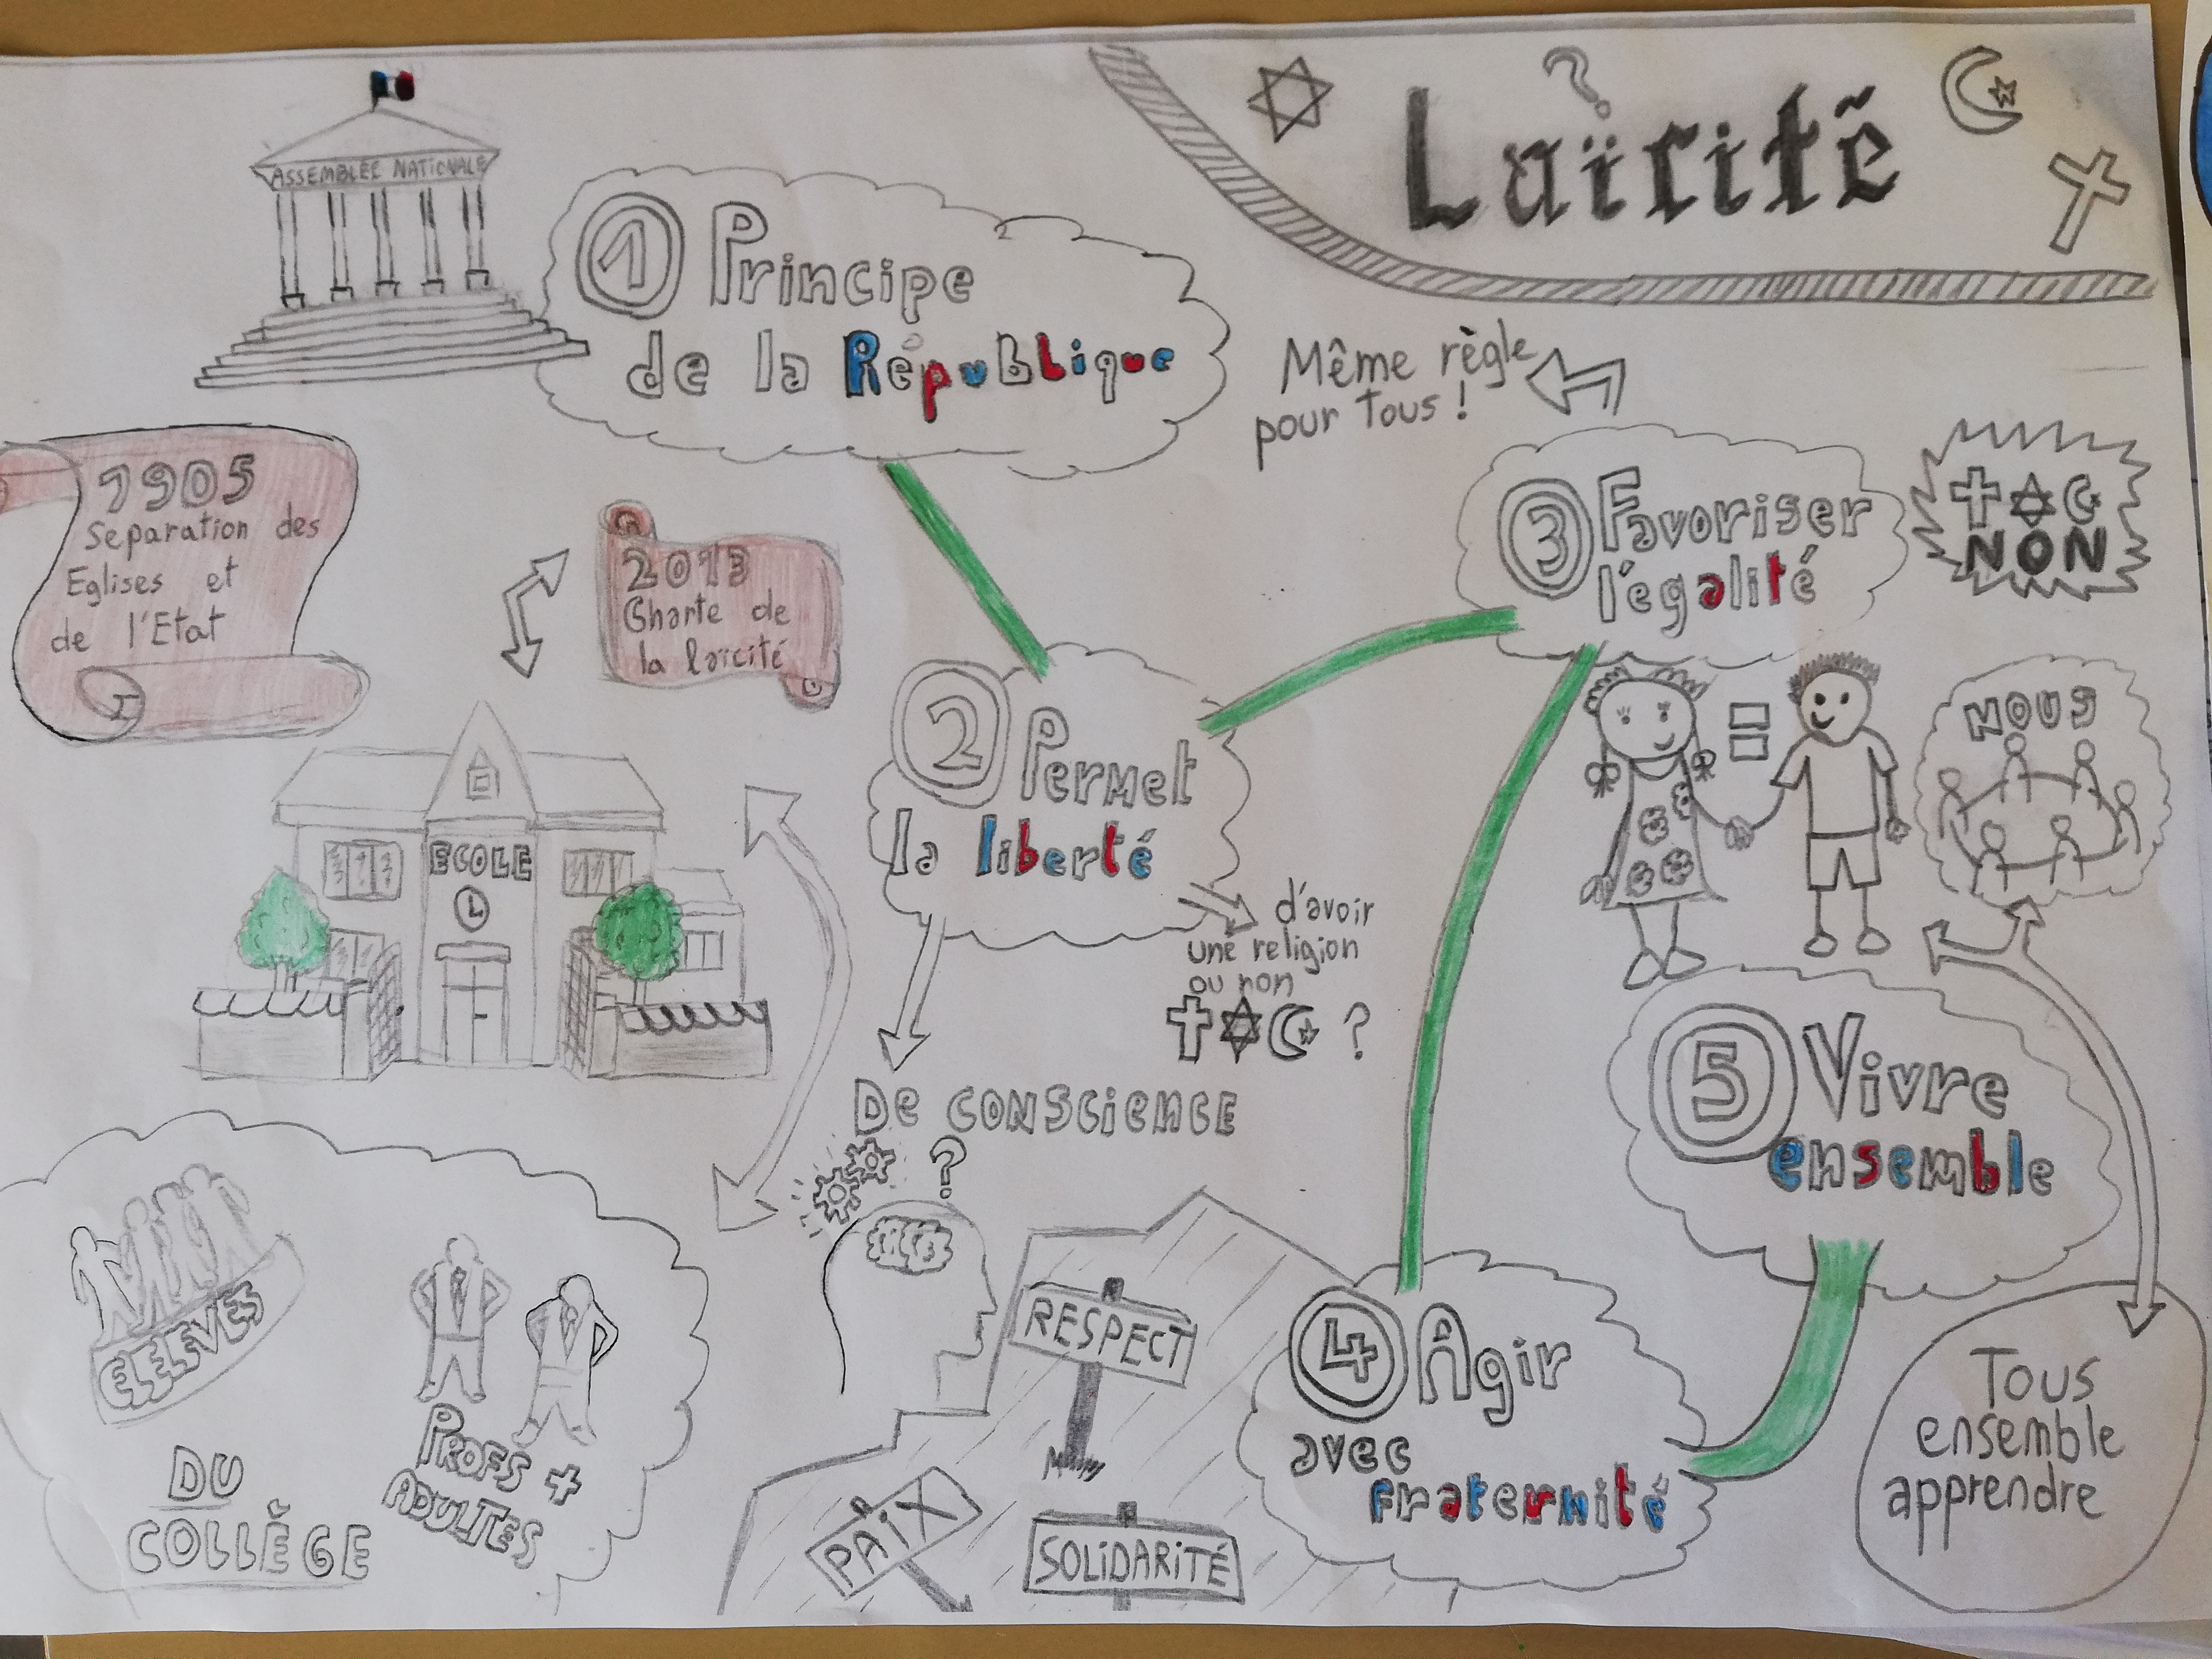 Laïcité
?
ASSEMBLÉE NATIONALE
1 Principe
de la République
1905
Separation des
Eglises et
de l'Etat
2013
Charte de
la laïcité
ECOLE
ELEVES
PROFS +
ADULTES
DU
COLLÈGE
2 Permet
la liberté
d'avoir
une religion
ou non
?
De conscience
?
3 Favoriser
l'égalité
Même règle
pour tous !
NON
=
NOUS
4 Agir
avec
fraternité
RESPECT
PAIX
SOLIDARITÉ
5 Vivre
ensemble
Tous
ensemble
apprendre